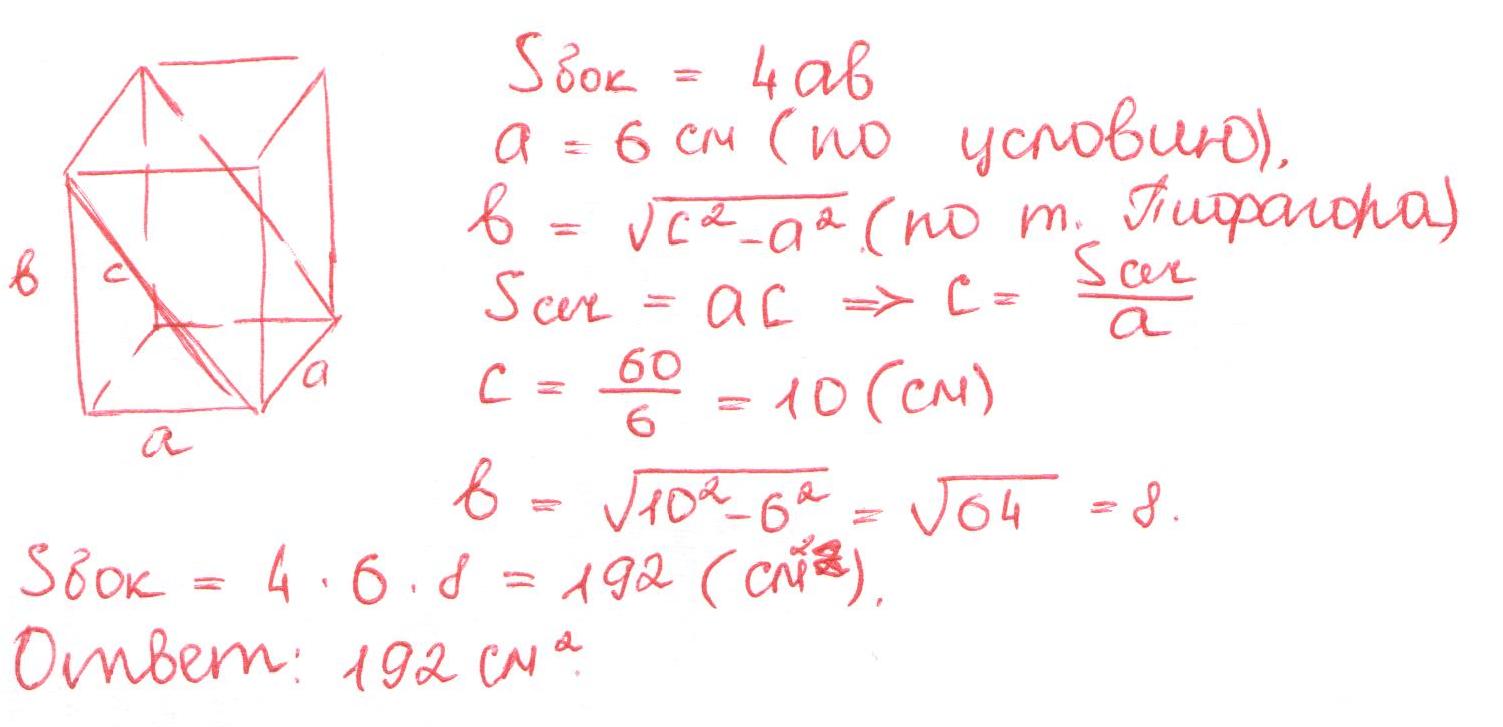 Sбок = 4ав
а = 6 см (по условию),
в = √(c² - a²) (по т. Пифагора)
Sсеч = ac => c = Sсеч/a
c = 60/6 = 10 (см)
в = √(10² - 6²) = √64 = 8.
Sбок = 4 · 6 · 8 = 192 (см²).
Ответ: 192 см².
в
c
a
a